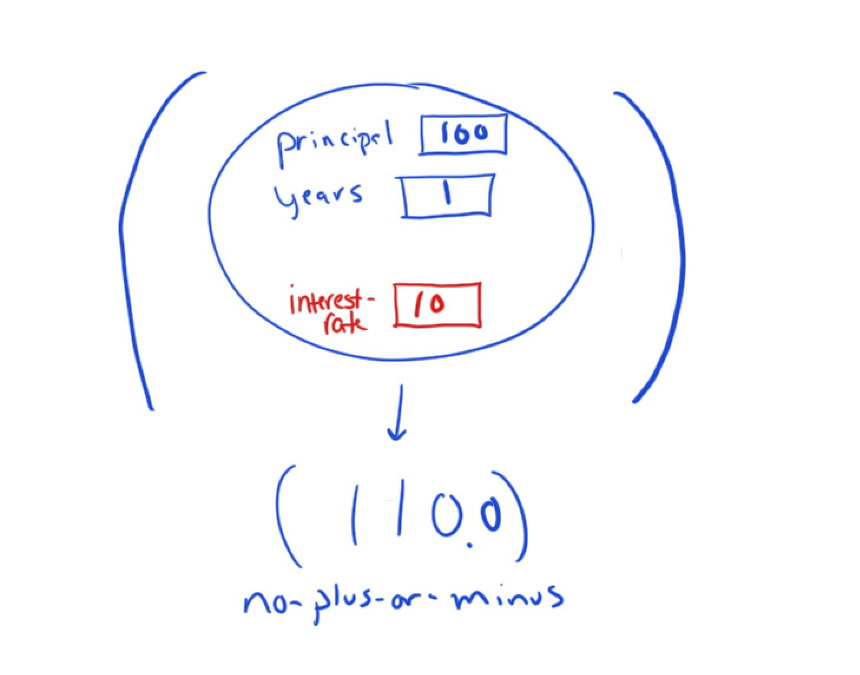 ( principal 100 )
years 1
interest-
rate 10
(110.0)
no-plus-or-minus